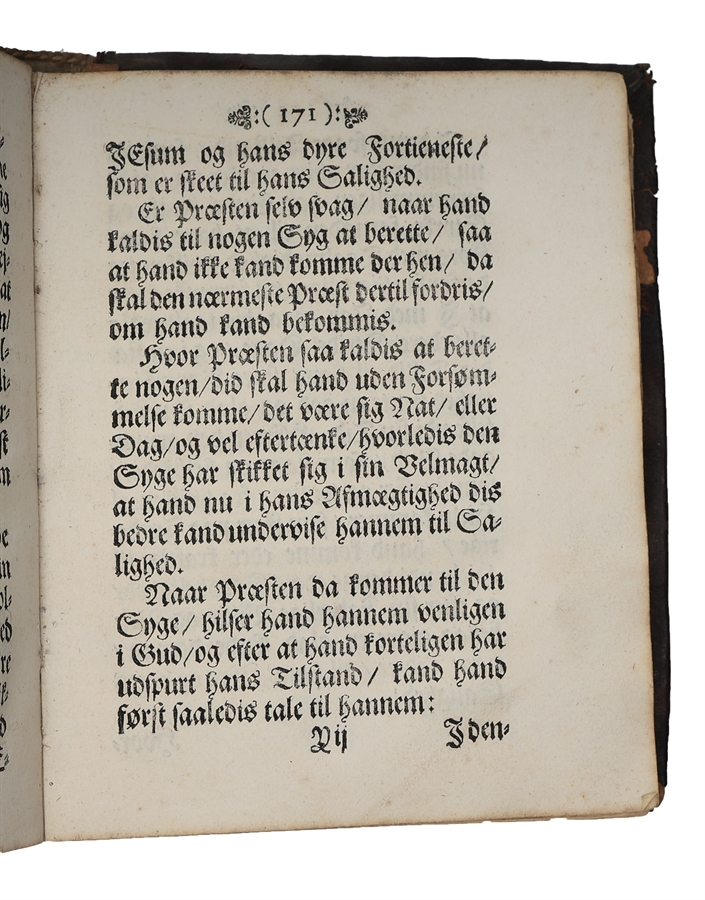 :( 171 ):
JEsum og hans dyre Fortieneste/
som er skeet til hans Salighed.
Er Præsten selv svag/ naar hand
kaldis til nogen Syg at berette/ saa
at hand ikke kand komme der hen/ da
skal den nærmeste Præst dertil fordris/
om hand kand bekommis.
Hvor Præsten saa kaldis at beret-
te nogen/did skal hand uden Forsøm-
melse komme/det være sig Nat/ eller
Dag/og vel eftertænke/hvorledis den
Syge har skikket sig i sin Velmagt/
at hand nu i hans Afmægtighed dis
bedre kand undervise hannem til Sa-
lighed.
Naar Præsten da kommer til den
Syge/ hilser hand hannem venligen
i Gud/og efter at hand korteligen har
udspurt hans Tilstand/ kand hand
først saaledis tale til hannem:
Yij Jden-